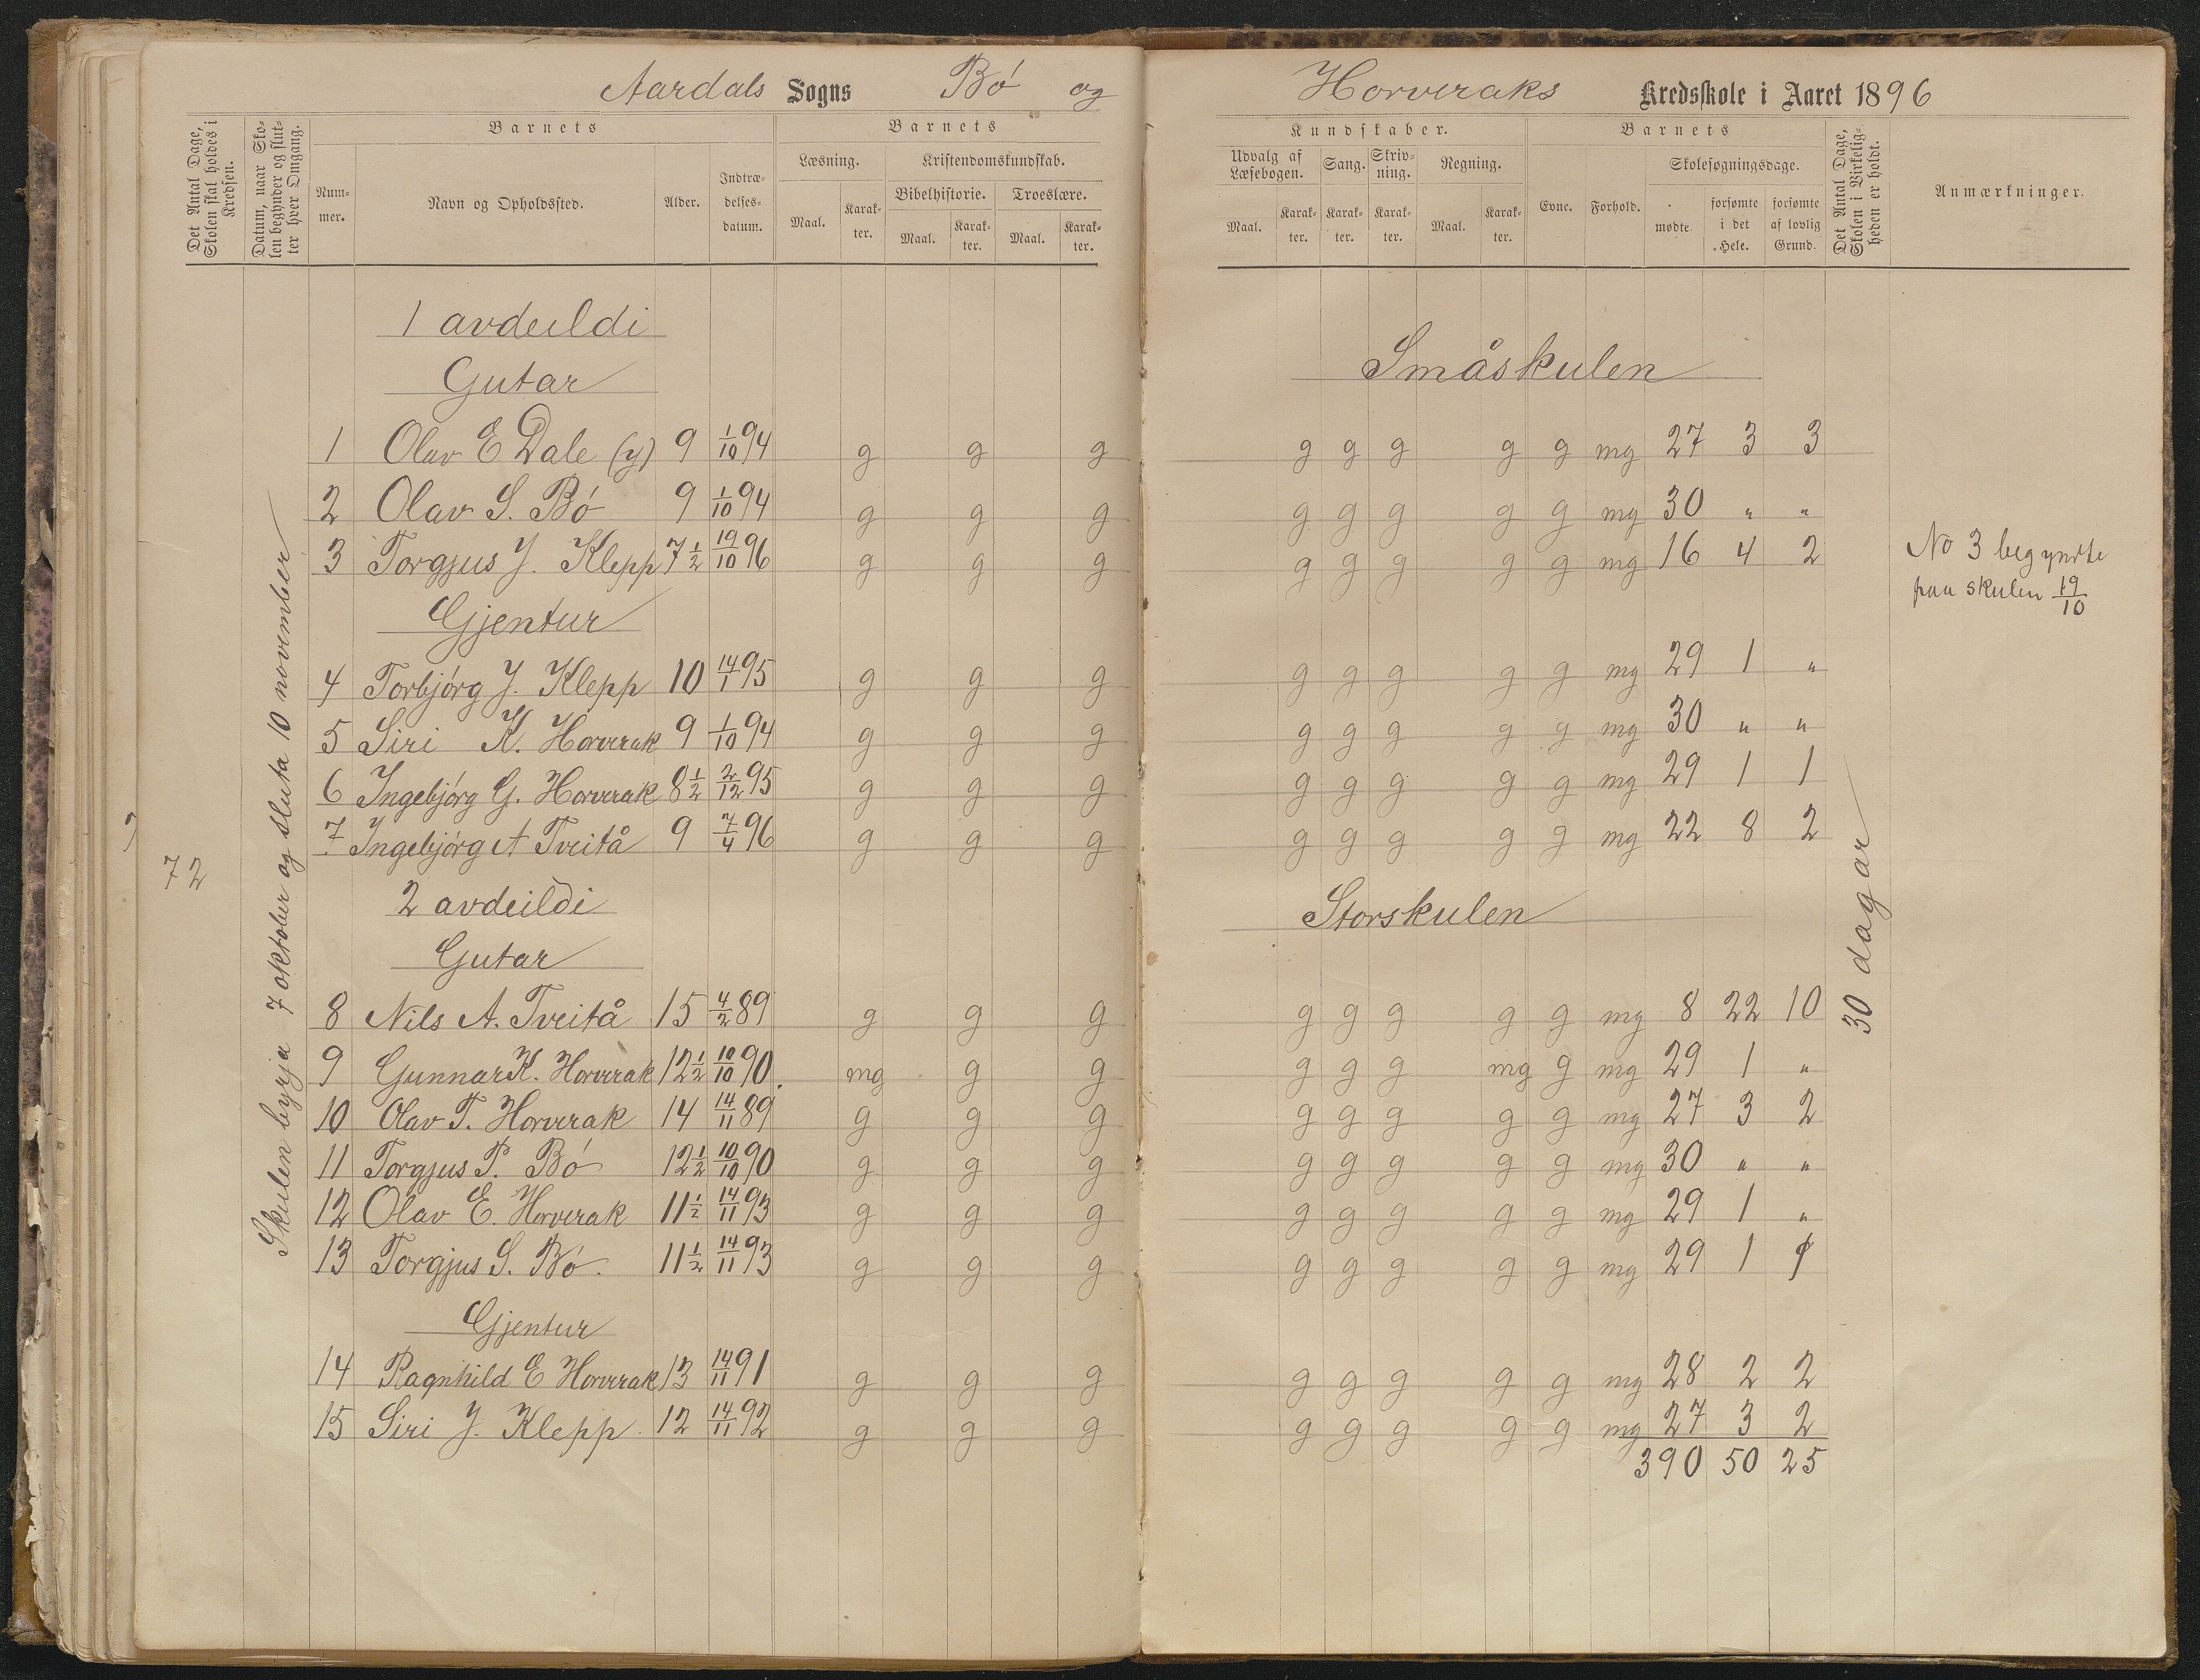 Aardals Sogns Bó og Horveraks Kredsskole i Aaret 1896
Det Antal Dage, Skolen skal holdes i Kredsen.
Datum, naar Skolen begynder og slutter hver Omgang.
Barnets
Nummer.
Navn og Opholdssted.
Alder.
Indtrædelsesdatum.
Barnets
Læsning.
Maal. Karakter.
Kristendomskundskab.
Bibelhistorie.
Maal. Karakter.
Troeslære.
Maal. Karakter.
Kundskaber.
Udvalg af Læsebogen.
Maal. Karakter.
Sang.
Karakter.
Skrivning.
Karakter.
Regning.
Maal. Karakter.
Barnets
Evne. Forhold.
Skolesøgningsdage.
mødte.
forsømte i det Hele.
forsømte af lovlig Grund.
Det Antal Dage, Skolen i Virkeligheden er holdt.
Anmærkninger.
72
Skulen byrja 7 oktober og sluta 10 november
1 avdeildi
Gutar
Småskulen
1 Olav E Dale (y) 9 1/10 94 g g g g g g g g mg 27 3 3
2 Olav S. Bó 9 1/10 94 g g g g g g g g mg 30 " "
3 Torgjus J. Klepp 7 1/2 19/10 96 g g g g g g g g mg 16 4 2
No 3 begyndte
paa skulen 19/10
Gjentur
4 Torbjórg J. Klepp 10 14/1 95 g g g g g g g g mg 29 1 "
5 Siri K. Horverak 9 1/10 94 g g g g g g g g mg 30 " "
6 Ingebjórg G. Horverak 8 1/2 2/12 95 g g g g g g g g mg 29 1 1
7 Ingebjórg A Tveitå 9 7/4 96 g g g g g g g g mg 22 8 2
30 dagar
2 avdeildi
Storskulen
Gutar
8 Nils A. Tveitå 15 4/2 89 g g g g g g g g mg 8 22 10
9 Gunnar K. Horverak 12 1/2 10/10 90. mg g g g g g mg g mg 29 1 "
10 Olav T. Horverak 14 14/11 89 g g g g g g g g mg 27 3 2
11 Torgjus P. Bó 12 1/2 10/10 90 g g g g g g g g mg 30 " "
12 Olav E. Horverak 11 1/2 14/11 93 g g g g g g g g mg 29 1 "
13 Torgjus S. Bó. 11 1/2 14/11 93 g g g g g g g g mg 29 1 1
Gjentur
14 Ragnhild E Horverak 13 14/11 91 g g g g g g g g mg 28 2 2
15 Siri J. Klepp. 12 14/11 92 g g g g g g g g mg 27 3 2
390 50 25